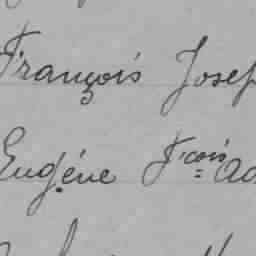 François Josep
Eugéne Fçois Ad